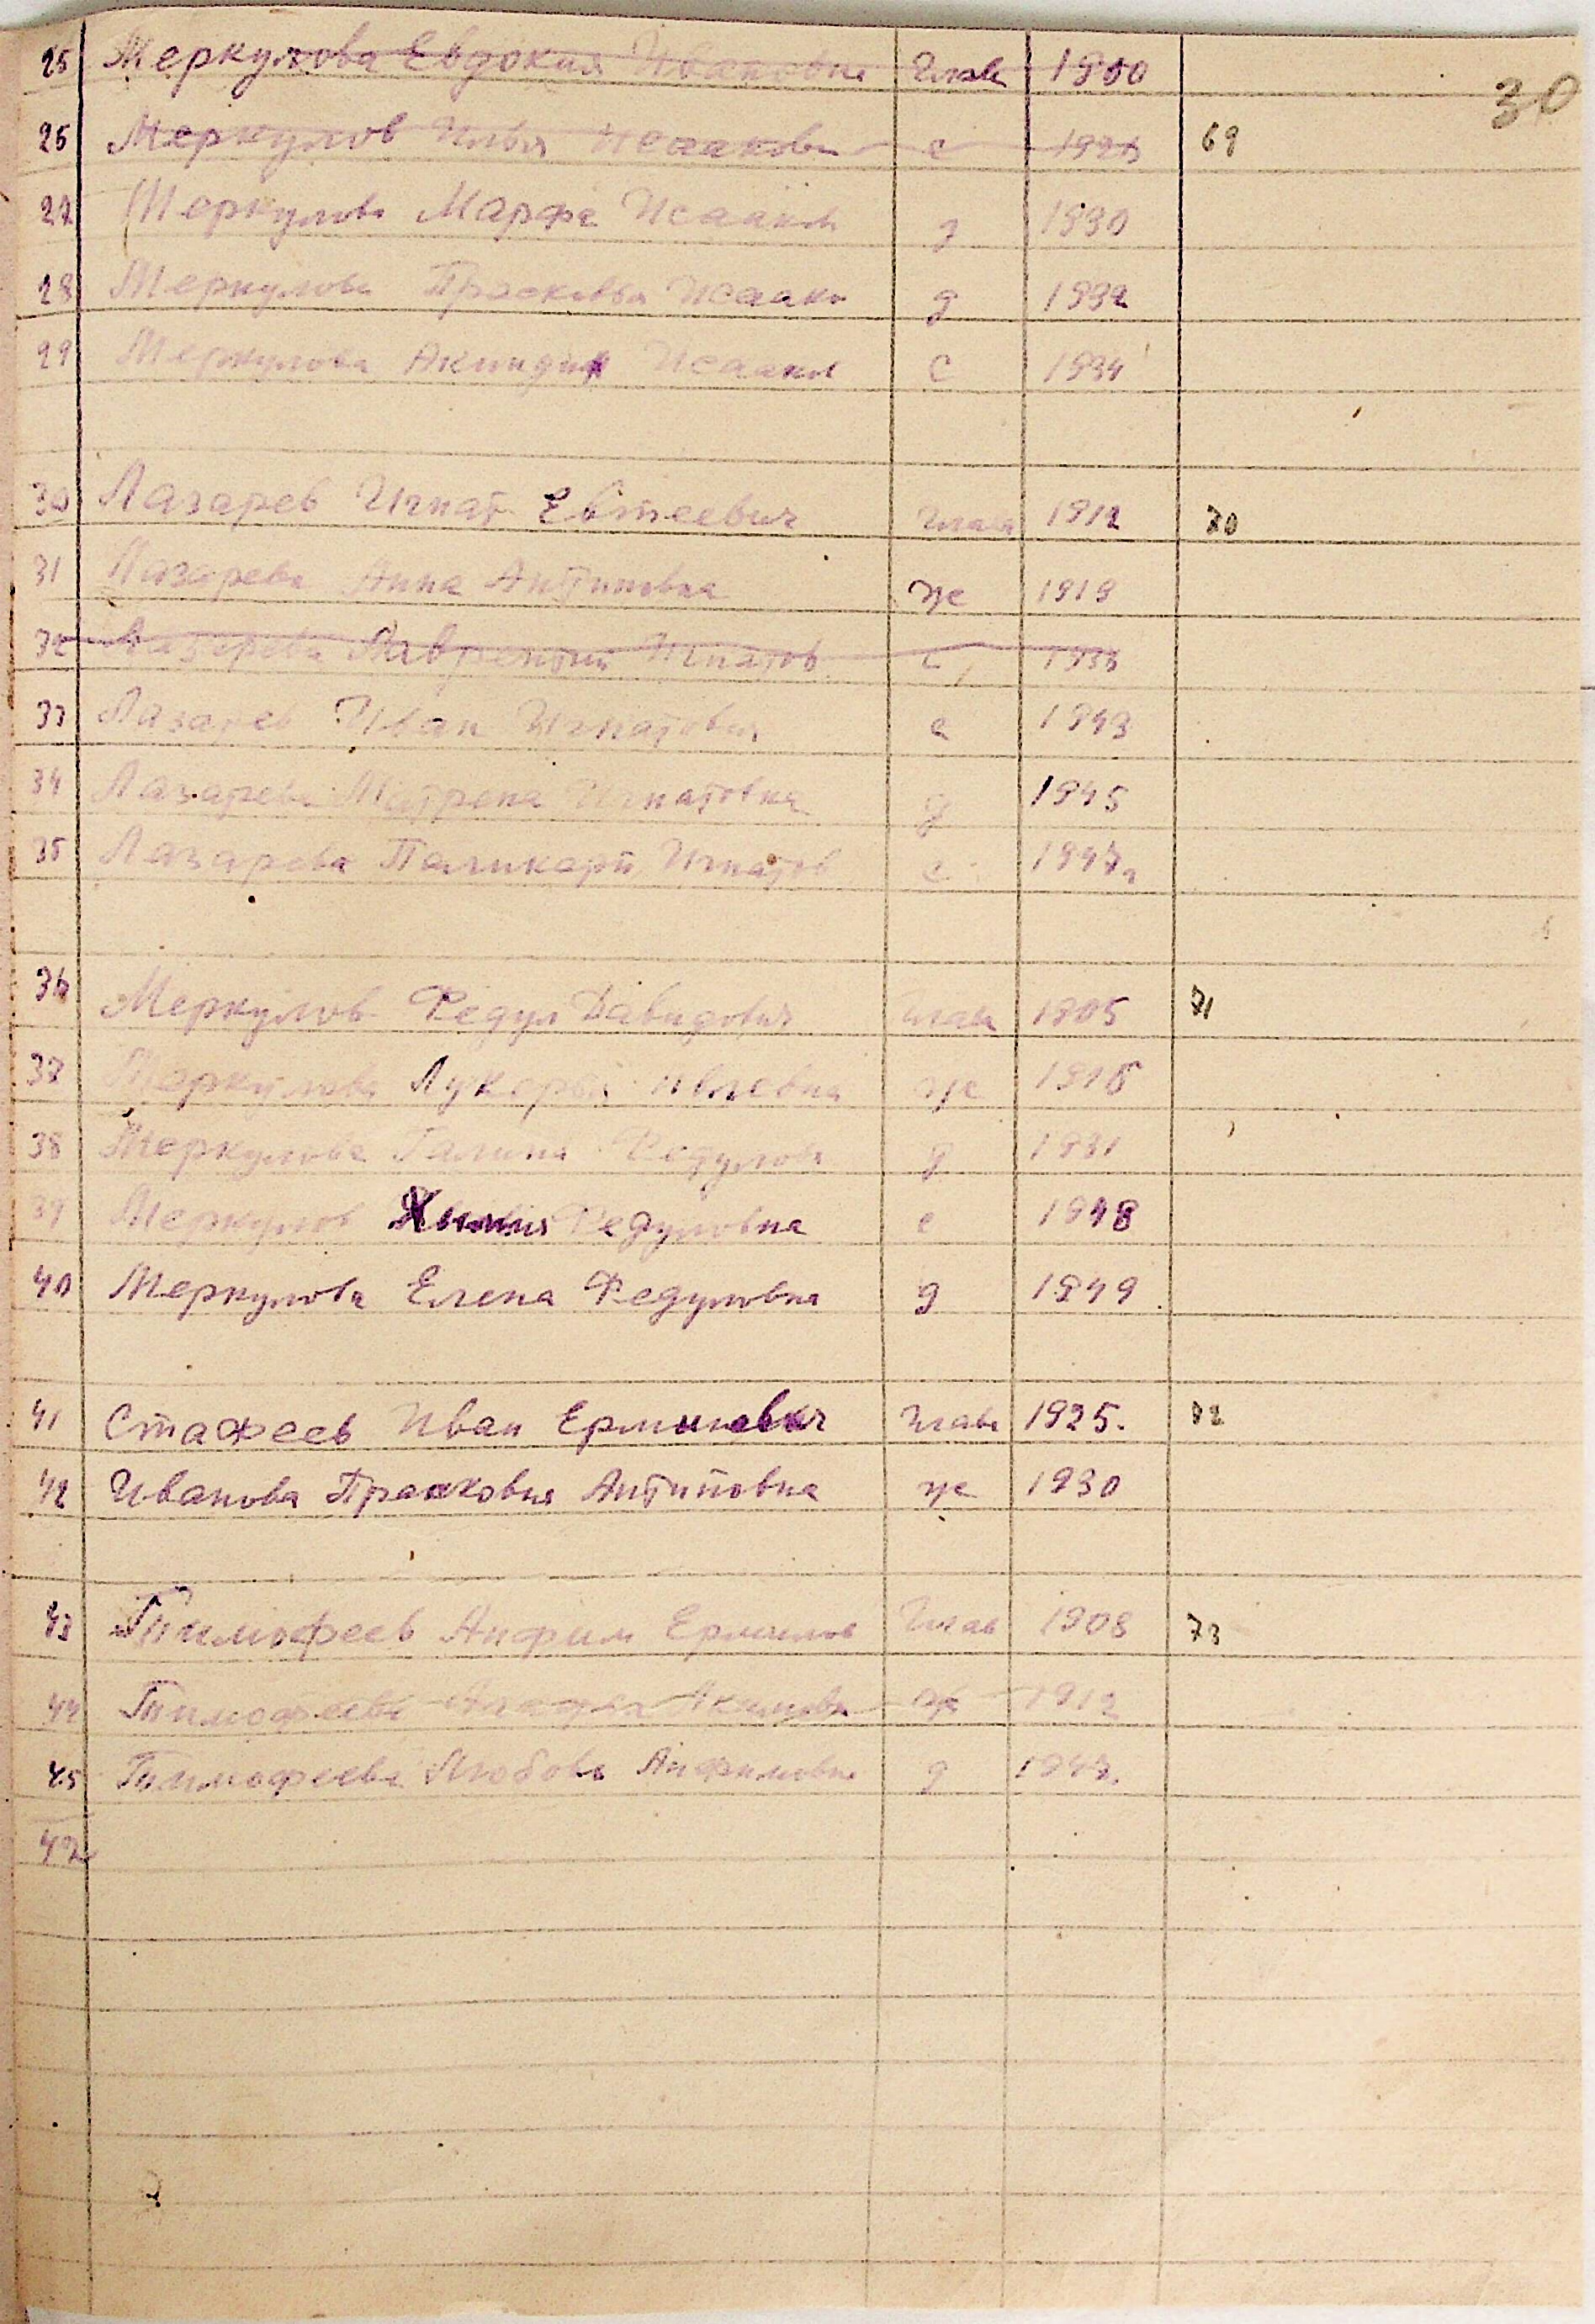 30
25 Меркулова Евдокия Ивановна Глав 1900
26 Меркулов Илья Исааков с 1926 69
27 Меркулова Марфа Исааков д 1930
28 Меркулова Прасковья Исаако д 1932
29 Меркулова Акиндин Исааков С 1934
30 Лазарев Игнат Евтеевич глава 1912 70
31 Лазарева Анна Антиповна же 1919
32 Лазарева Лаврентий Игнатов с
33 Лазарев Иван Игнатович с 1943
34 Лазарева Матрена Игнатовна д 1945
35 Лазарева Паликарп Игнатов с 1947г
36 Меркулов Федул Давидович глава 1905 71
37 Меркулова Лукерья ивлевна же
38 Меркулова Галина Федулова д 1931
39 Меркулов Федуловна с 1948
40 Меркулова Елена Федуловна д 1949
41 Стафеев Иван Ермилович Глава 1925. 72
42 Иванова Прасковья Антиповна же 1930
43 Тимофеев Анфим Ермилов Глав 1908 73
44 Тимофеева Агафья Акимовн ж 1912
45 Тимофеева Любовь Анфимовна д 1947.
47